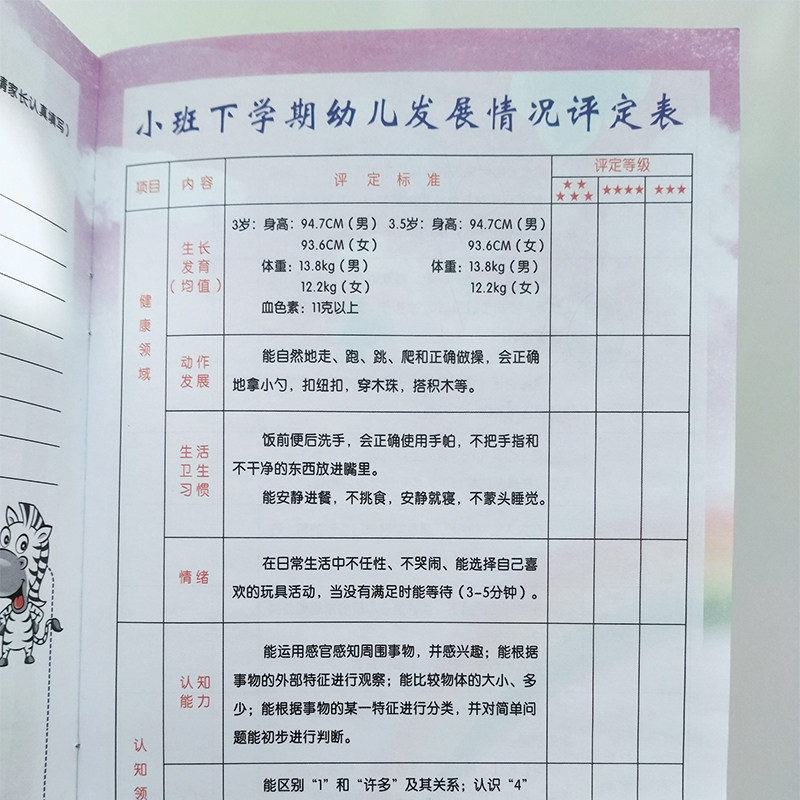 请家长认真填写）
小班下学期幼儿发展情况评定表
项目 内容 评定标准 评定等级
★★★★★ ★★★★ ★★★
健康领域
生长发育（均值）
3岁：身高：94.7CM（男） 3.5岁：身高：94.7CM（男）
93.6CM（女） 93.6CM（女）
体重：13.8kg（男） 体重：13.8kg（男）
12.2kg（女） 12.2kg（女）
血色素：11克以上
动作发展
能自然地走、跑、跳、爬和正确做操，会正确
地拿小勺，扣纽扣，穿木珠，搭积木等。
生活卫生习惯
饭前便后洗手，会正确使用手帕，不把手指和
不干净的东西放进嘴里。
能安静进餐，不挑食，安静就寝，不蒙头睡觉。
情绪
在日常生活中不任性、不哭闹、能选择自己喜
欢的玩具活动，当没有满足时能等待（3-5分钟）。
认知领
认知能力
能运用感官感知周围事物，并感兴趣；能根据
事物的外部特征进行观察；能比较物体的大小、多
少；能根据事物的某一特征进行分类，并对简单问
题能初步进行判断。
能区别“1”和“许多”及其关系；认识“4”